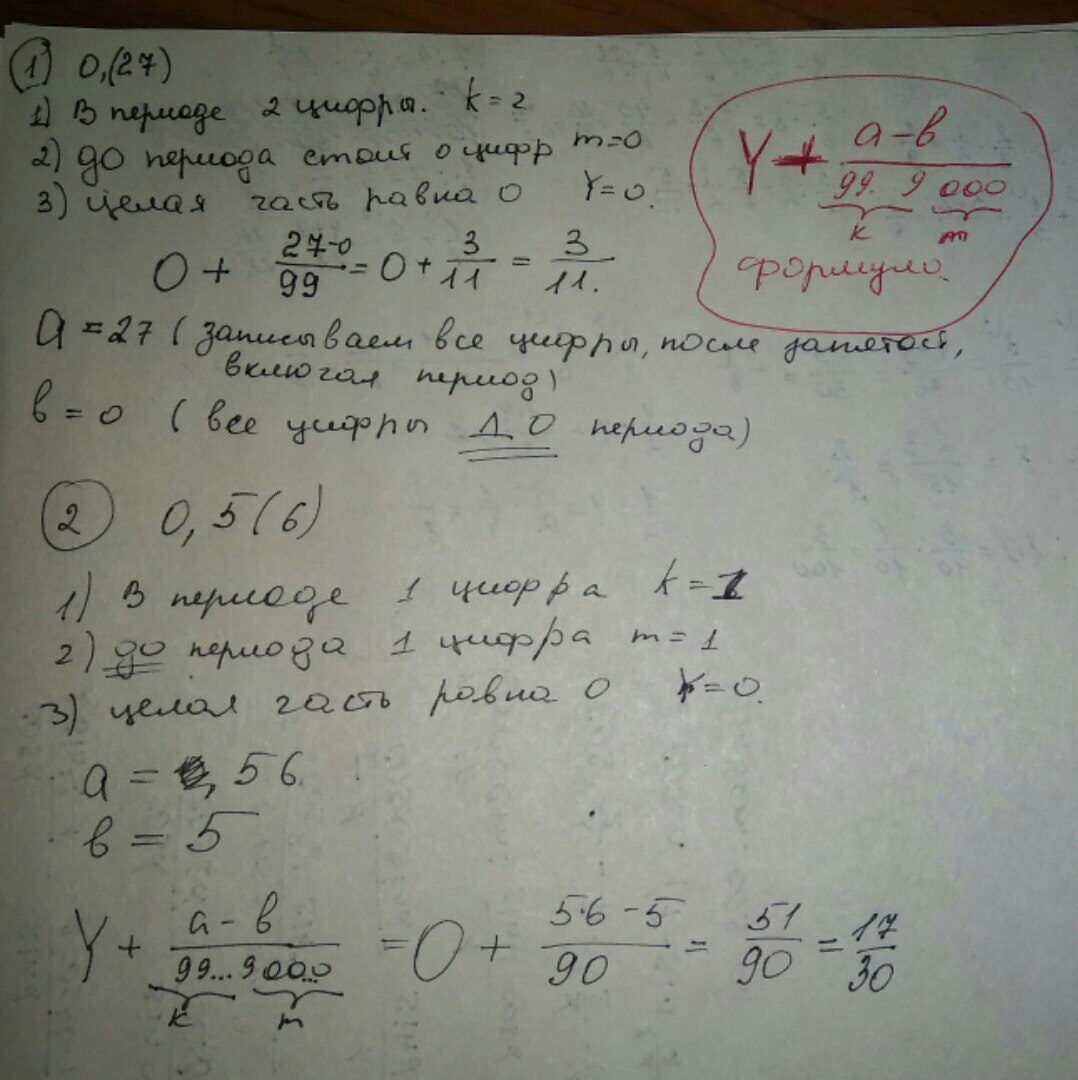 1) 0,(27)
1) В периоде 2 цифры. k=2
2) до периода стоит 0 цифр m=0
3) целая часть равна 0 Y=0.
0 + 27-0/99 = 0 + 3/11 = 3/11.
Y + a-b/99. 9 000
k m
формула.
a = 27 (записываем все цифры, после запятой,
включая период)
b = 0 (все цифры ДО периода)
2 0,5(6)
1) В периоде 1 цифра k=1
2) до периода 1 цифра m=1
3) целая часть равна 0 Y=0.
a = , 56.
b = 5
Y + a-b/99...9000 = 0 + 56-5/90 = 51/90 = 17/30
k m